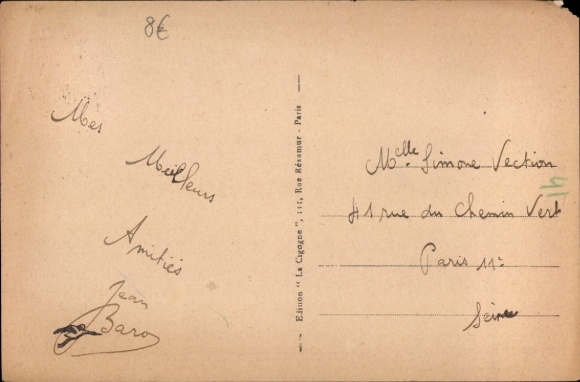 8€
Mes
Meilleurs
Amitiés
Jean
Baro
Edition "La Cigogne", 111, Rue Réaumur - Paris
Melle Simone Vection
41 rue du Chemin Vert
Paris 11e
Seine